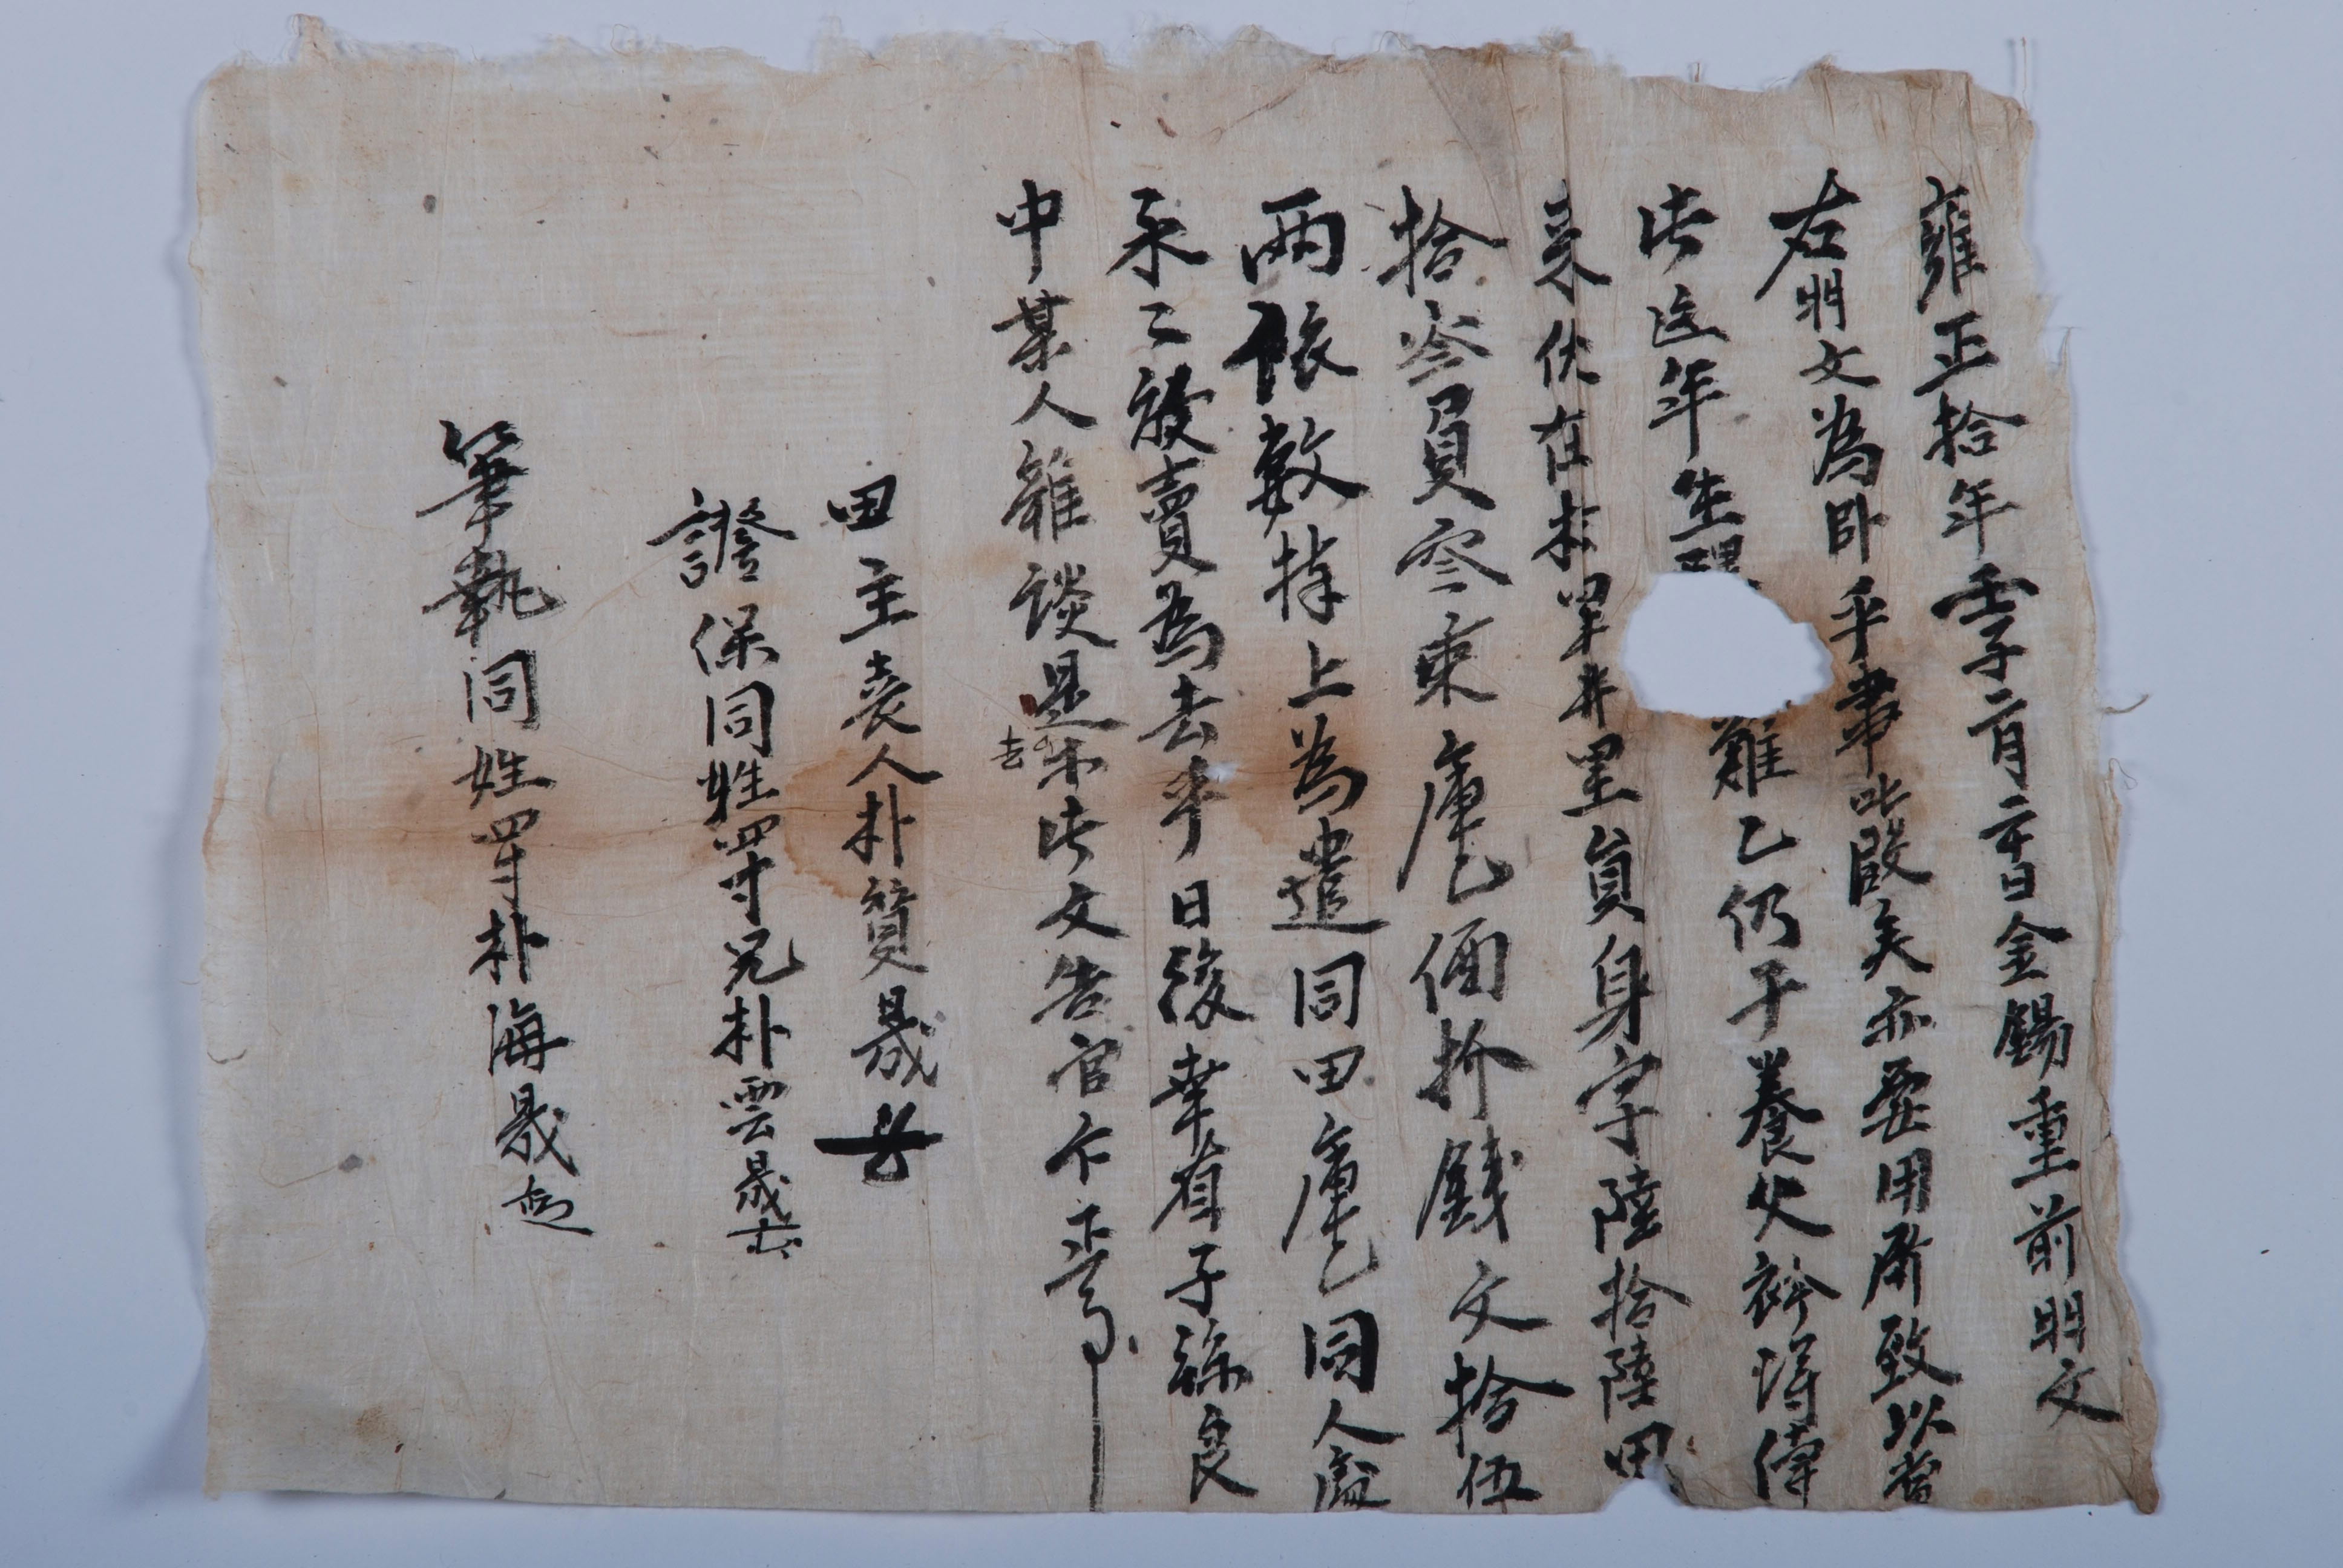 雍正拾年壬子二月二十日金錫重前明文
右明文為卧乎事叱段矣亦要用所致以當
此迄年生理難乙仍于養父衿得傳
来伏在村里員身字陸拾陸田
拾叁負叁束庫乙価折錢文拾伍
兩依數捧上為遣同田庫乙同人處
永永放賣為去乎日後幸有子孫良
中某人雜談是去等此文告官卞正事
田主喪人朴質晟
證保同姓四寸兄朴雲晟
筆執同姓四寸朴海晟